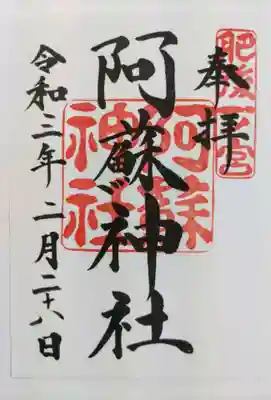 肥後一宮
奉拝
阿蘇神社
阿蘇
神社
令和三年二月二十八日